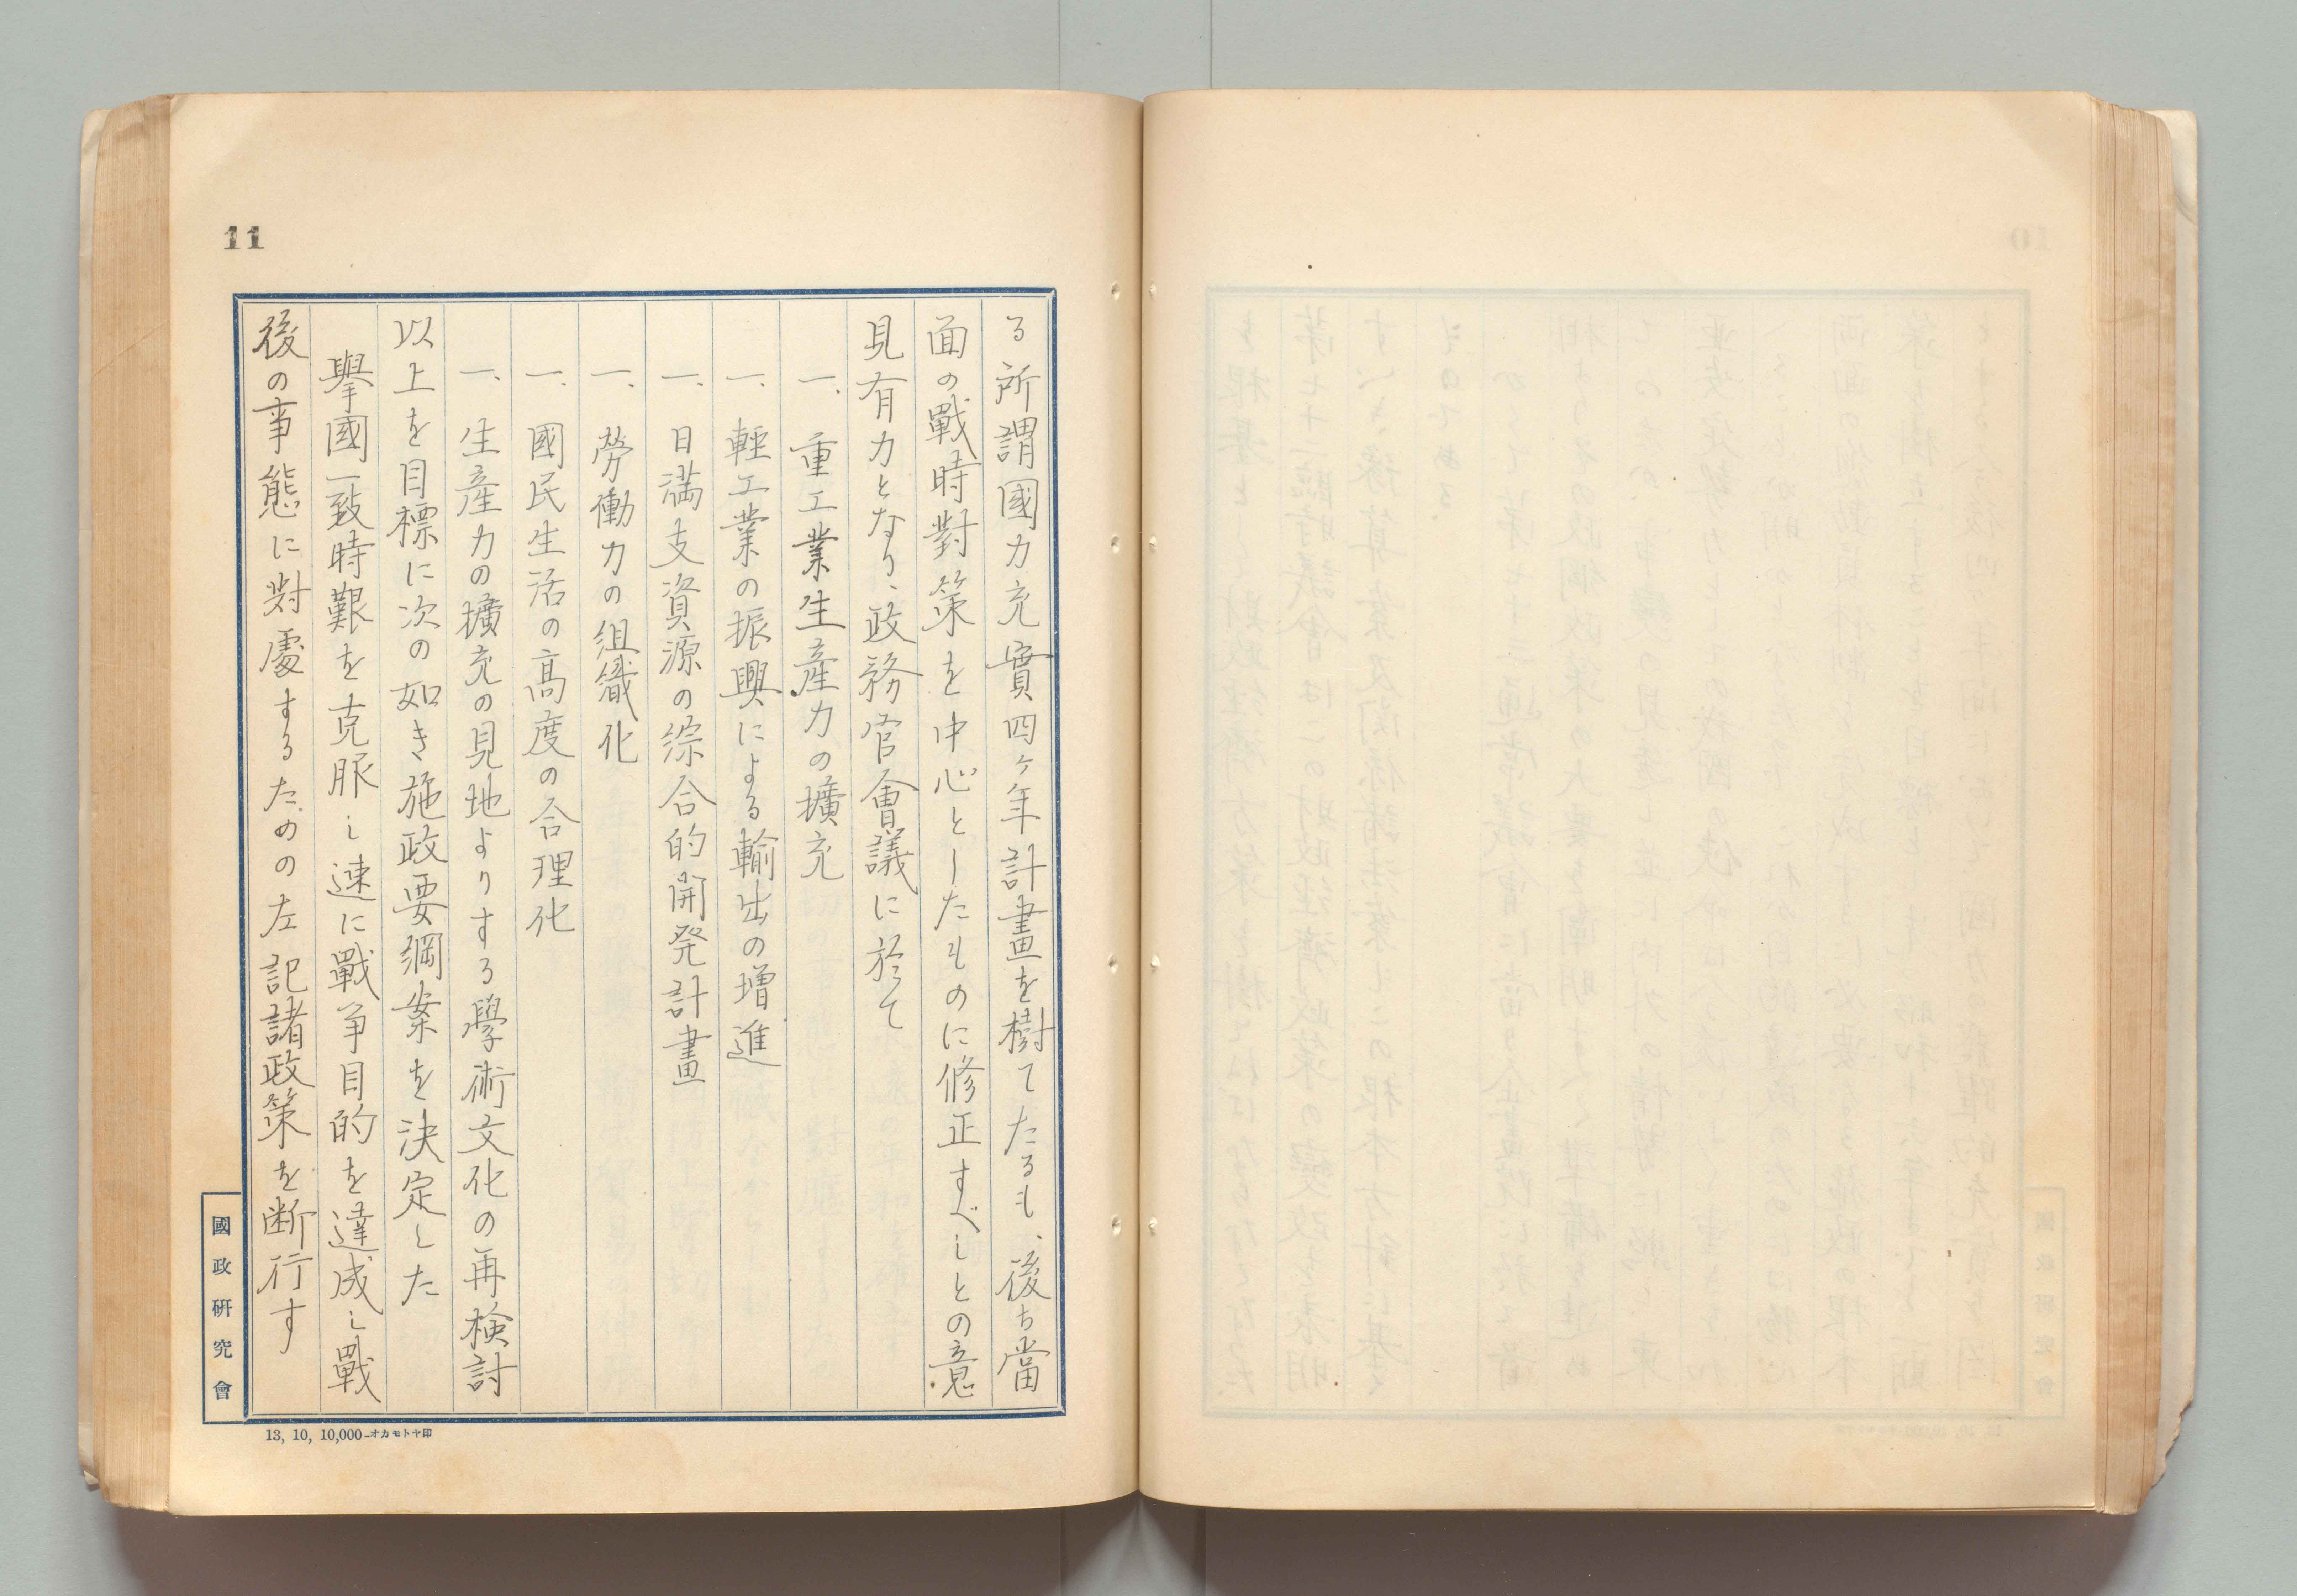 11
る所謂國力充實四ヶ年計畫を樹てたるも、後ち當
面の戰時對策を中心としたものに修正すべしとの意
見有力となり、政務官會議に於て
一、重工業生産力の擴充
一、輕工業の振興による輸出の増進
一、日満支資源の綜合的開発計畫
一、勞働力の組織化
一、國民生活の高度の合理化
一、生産力の擴充の見地よりする學術文化の再検討
以上を目標に次の如き施政要綱案を決定した
擧國一致時艱を克服し速に戰争目的を達成し戰
後の事態に對處するための左記諸政策を断行す
國政研究會
13, 10, 10,000—オカモトヤ印